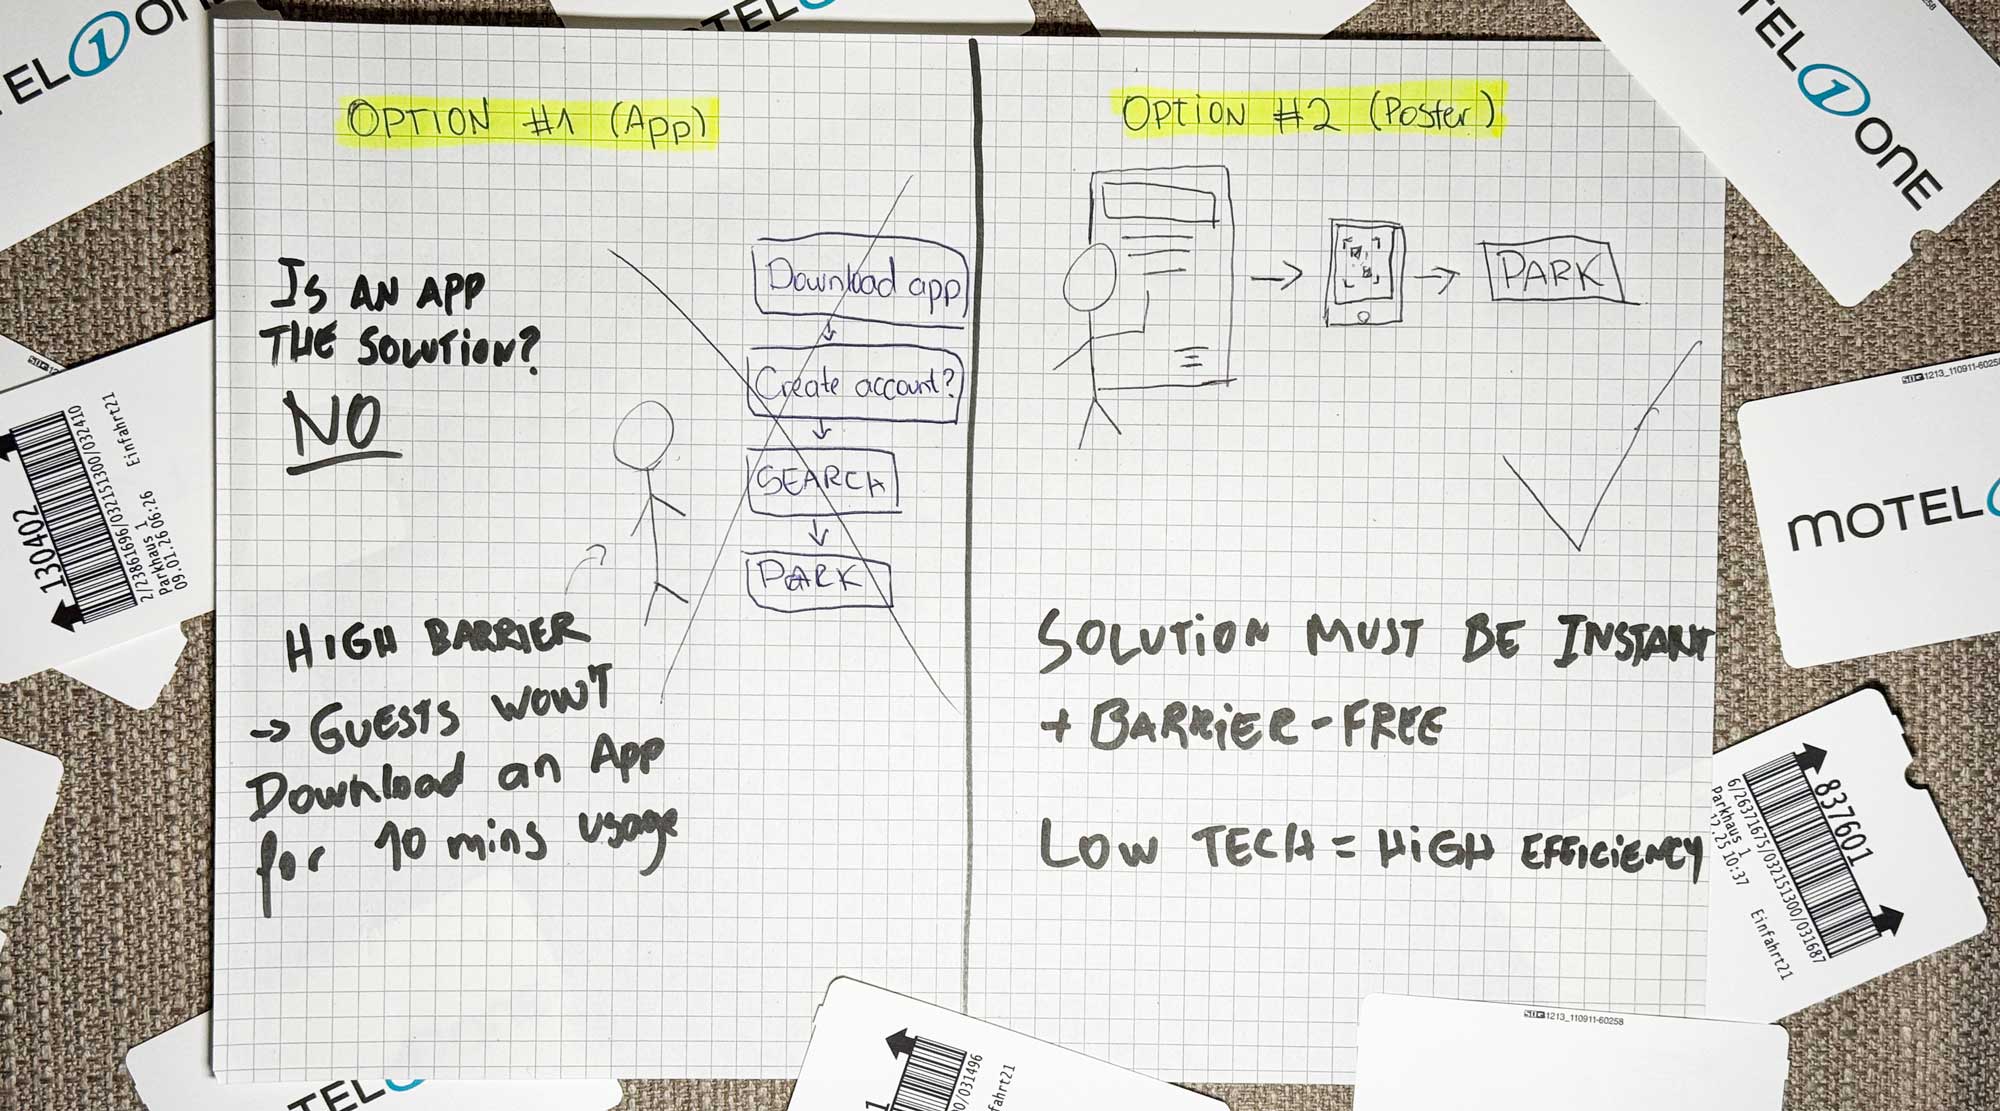 OPTION #1 (App)
IS AN APP
THE SOLUTION?
NO
Download app
Create account?
SEARCH
PARK
HIGH BARRIER
→ GUESTS WON'T
Download an App
for 10 mins usage
OPTION #2 (Poster)
PARK
SOLUTION MUST BE INSTANT
+ BARRIER-FREE
LOW TECH = HIGH EFFICIENCY
TEL ONE
TEL ONE
MOTEL
TEL
130402
2/23861696/032151300/032410
Parkhaus 1
09.01.26 06:26 Einfahrt21
1213_110911-60258
837601
6/26371675/032151300/031687
Parkhaus 1
12.25 10:37 Einfahrt21
1213_110911-60258
00/031496
nfahrt21